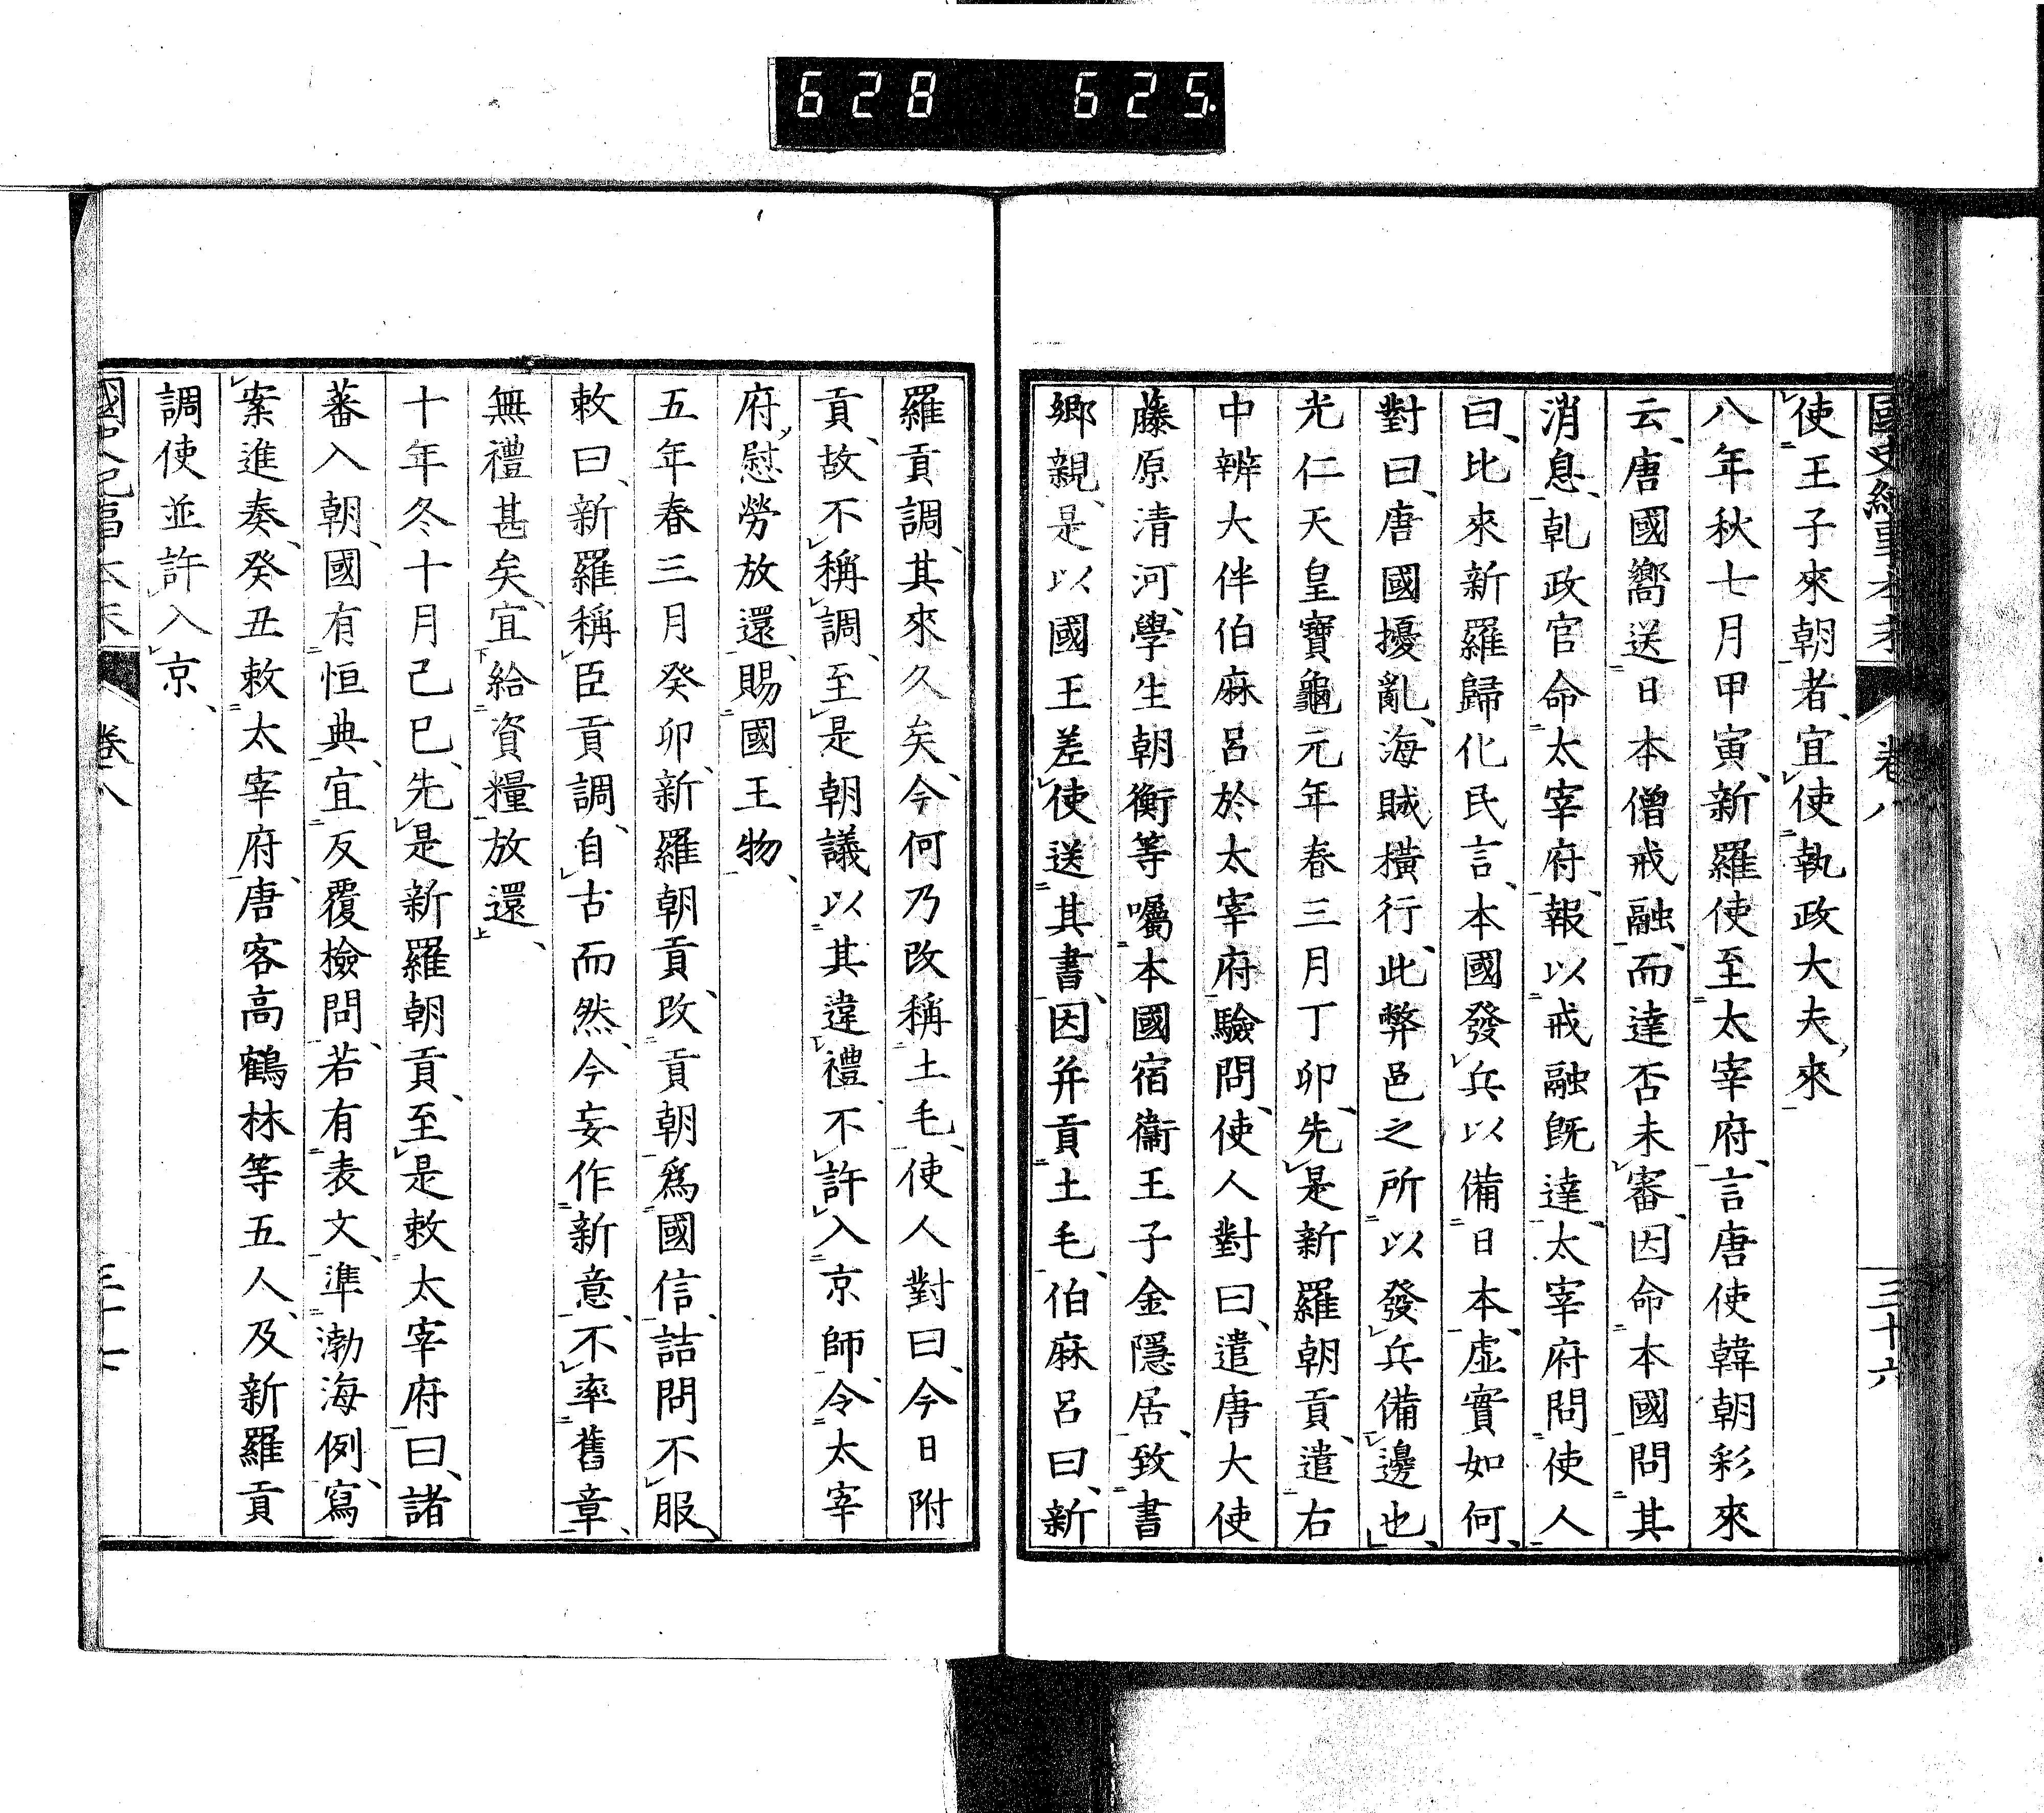 628 625
使王子來朝者、宜使執政大夫來
八年秋七月甲寅、新羅使至太宰府、言唐使韓朝彩來
云、唐國嚮送日本僧戒融、而達否未審、因命本國問其
消息、乹政官命太宰府、報以戒融既達、太宰府問使人
曰、比來新羅歸化民言、本國發兵以備日本、虛實如何、
對曰、唐國擾亂、海賊橫行、此弊邑之所以發兵備邊也、
光仁天皇寶龜元年春三月丁卯、先是新羅朝貢、遣右
中辨大伴伯麻呂於太宰府驗問、使人對曰、遣唐大使
藤原清河、學生朝衡等囑本國宿衞王子金隱居、致書
鄉親、是以國王差使送其書、因并貢土毛、伯麻呂曰、新
羅貢調、其來久矣、今何乃改稱土毛、使人對曰、今日附
貢、故不稱調、至是朝議以其違禮、不許入京師、令太宰
府、慰勞放還、賜國王物、
五年春三月癸卯、新羅朝貢、改貢朝爲國信、詰問不服、
敕曰、新羅稱臣貢調、自古而然、今妄作新意、不率舊章、
無禮甚矣、宜給資糧放還、
十年冬十月己巳、先是新羅朝貢、至是敕太宰府曰、諸
蕃入朝、國有恒典、宜反覆檢問、若有表文、準渤海例、寫
案進奏、癸丑敕太宰府、唐客高鶴林等五人、及新羅貢
調使並許入京、
國史紀事本末 卷八